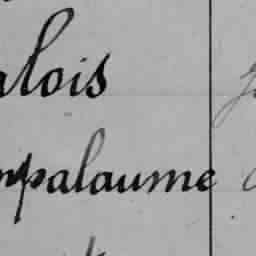 alois
mpalaume